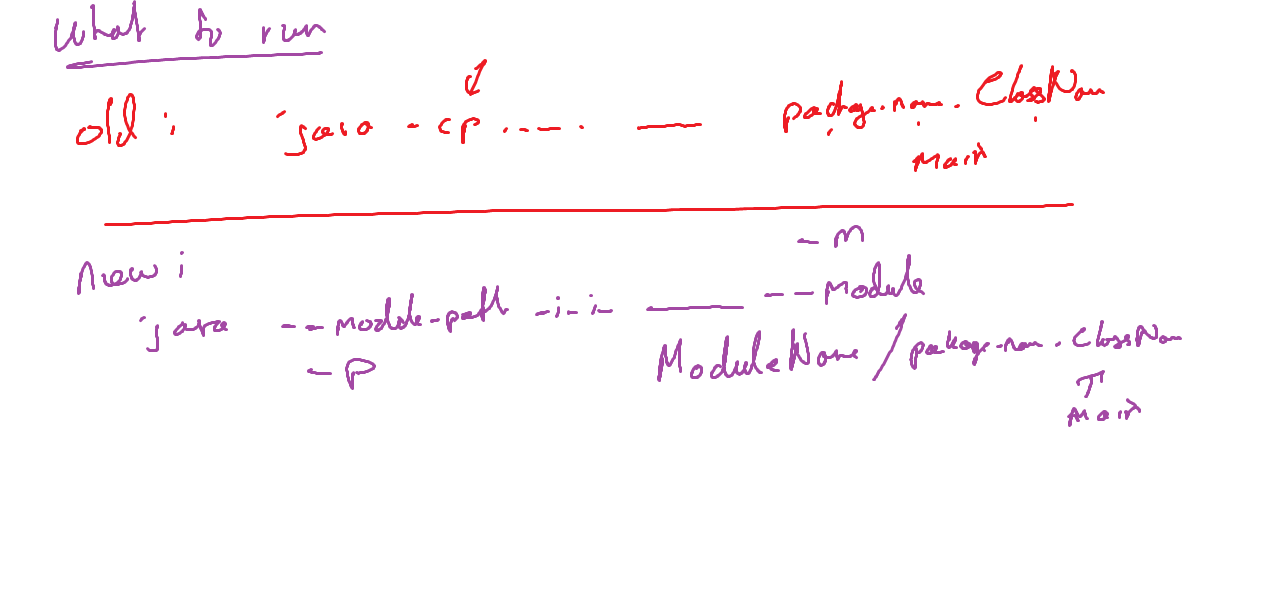 What to run
old : java - cp ..... —— package.nam. ClassNam
Main
- m
New :
java -- Module-path -:-:- —— -- Module
- P
ModuleName / package.nam. ClassNam
Main